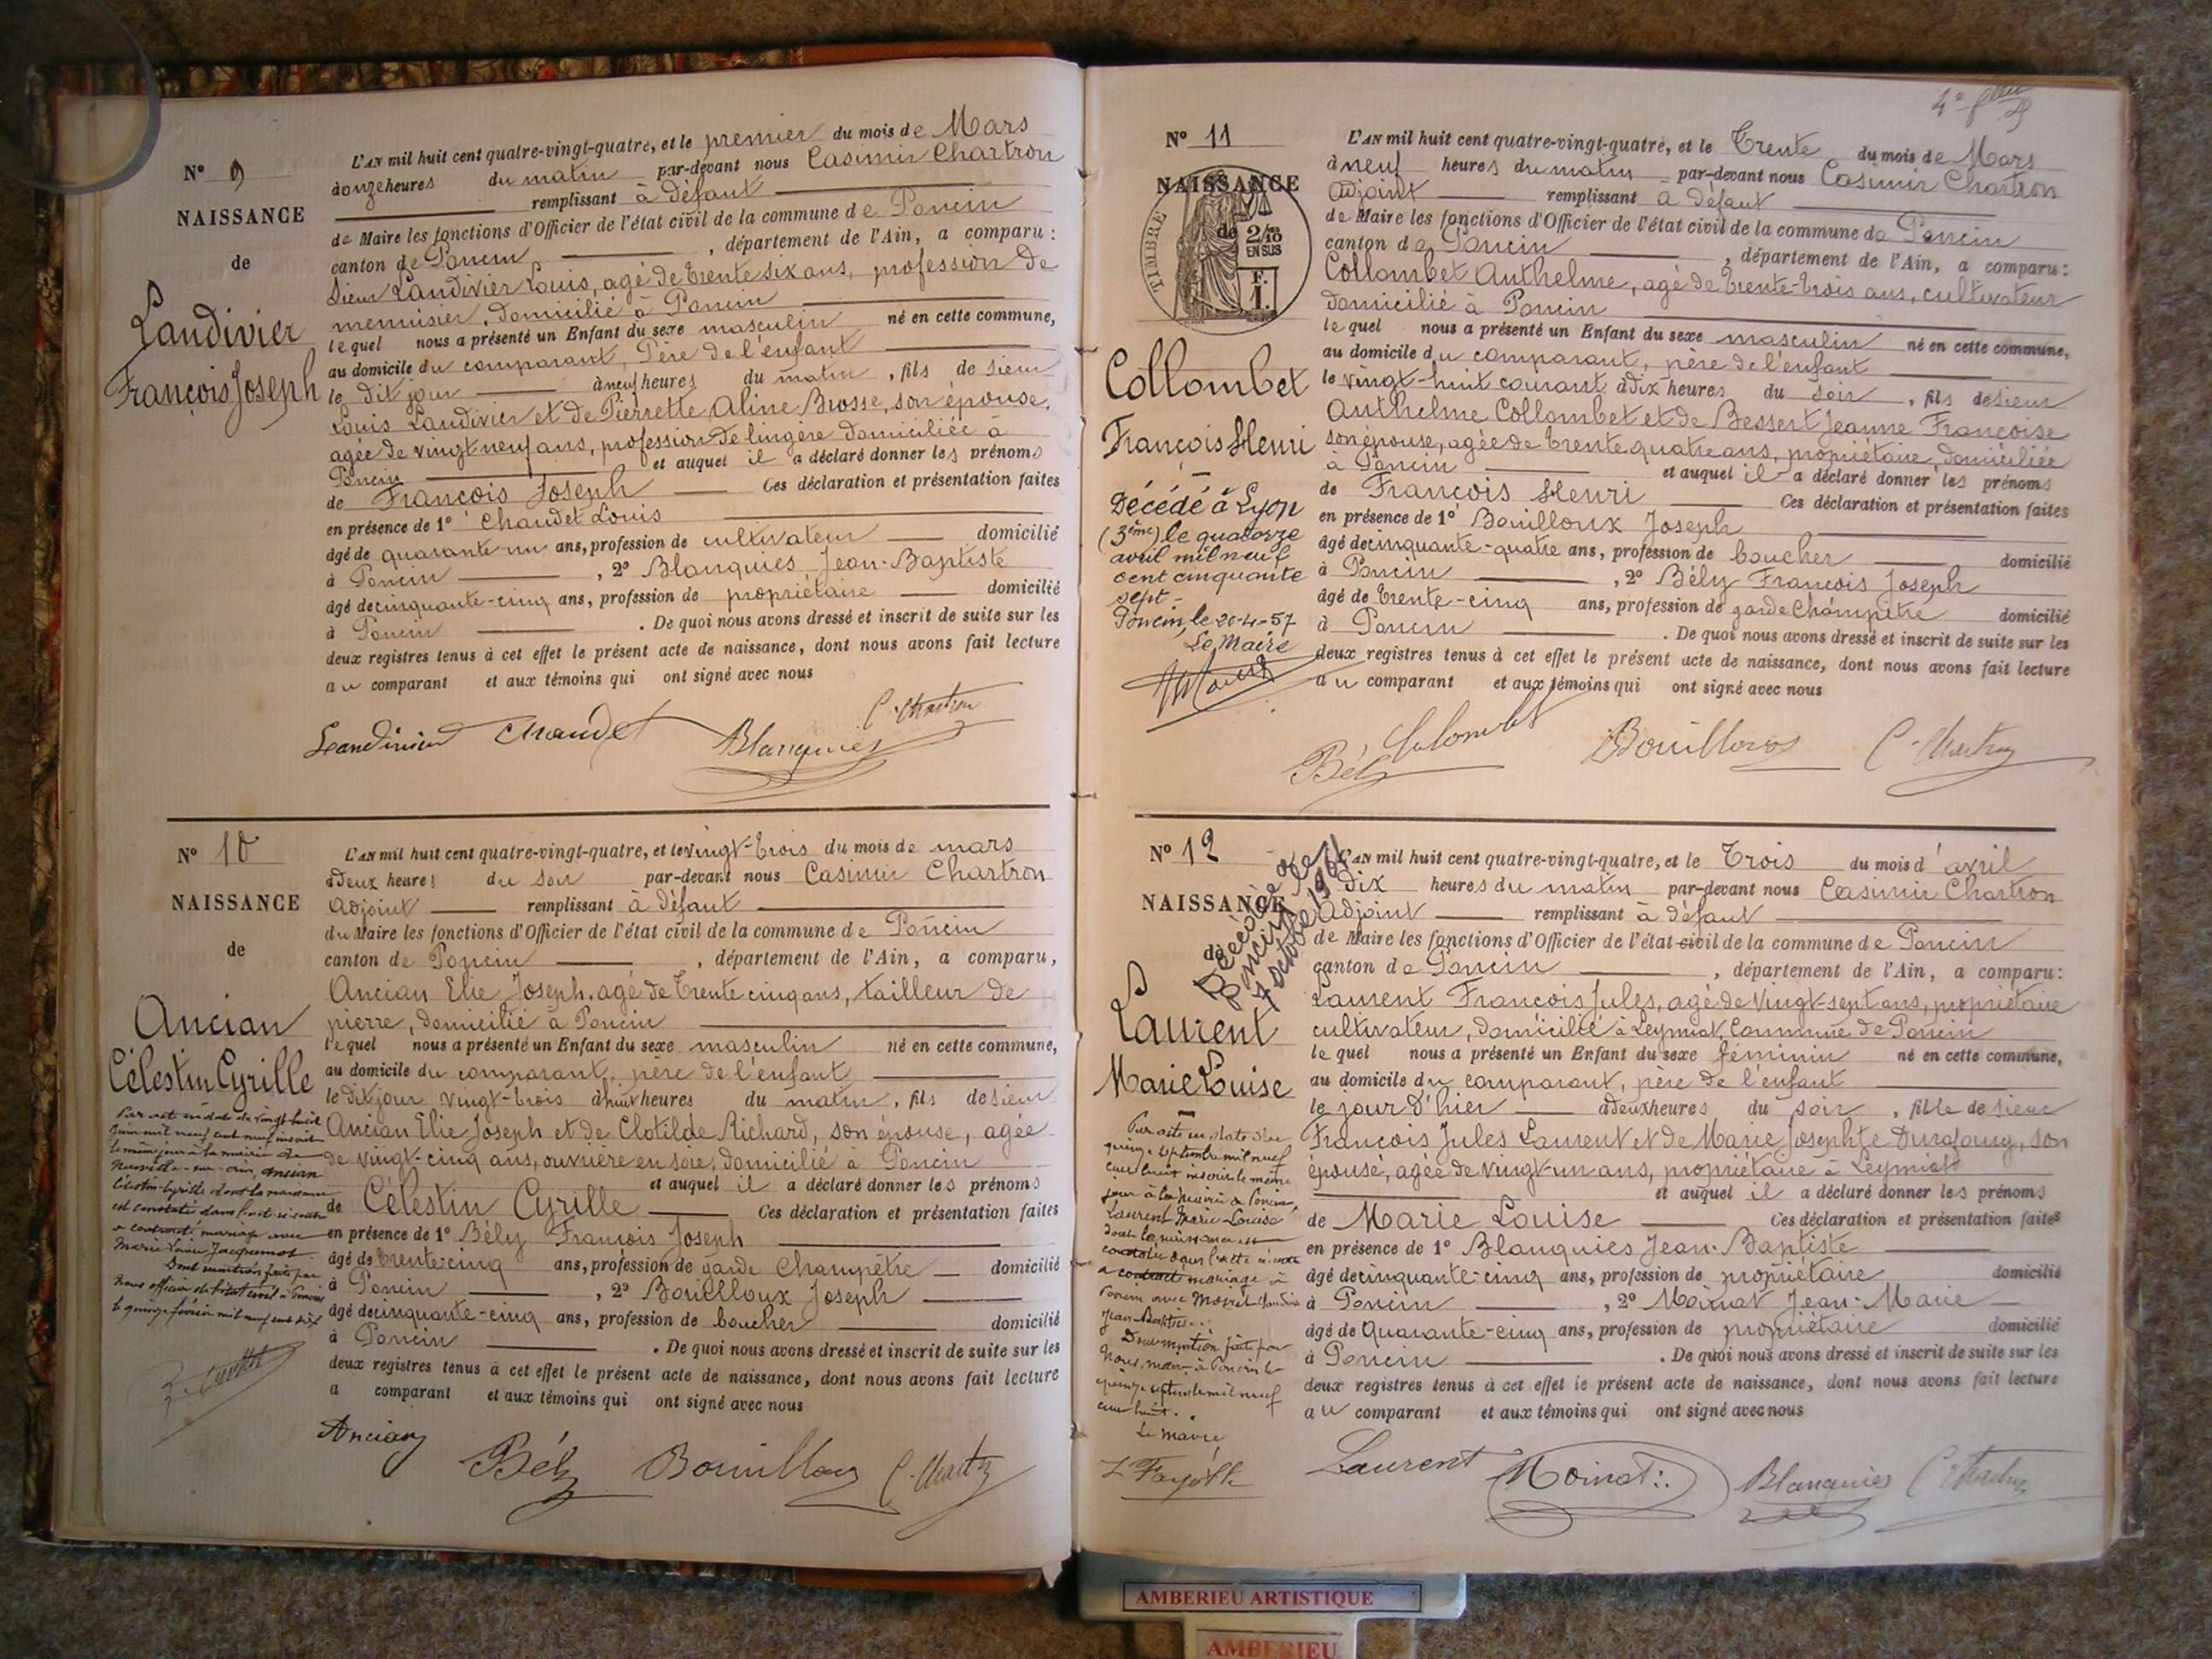 Nº 9
NAISSANCE
de
Landivier
François Joseph
L'AN mil huit cent quatre-vingt-quatre, et le premier du mois de Mars
à onze heures du matin par-devant nous Casimir Chartron
remplissant à défaut
de Maire les fonctions d'Officier de l'état civil de la commune de Poncin
canton de Poncin, département de l'Ain, a comparu :
Sieur Landivier Louis, agé de trente six ans, profession de
menuisier, domicilié à Poncin
lequel nous a présenté un Enfant du sexe masculin né en cette commune,
au domicile du comparant, Père de l'enfant
le dit jour à neuf heures du matin, fils de sieur
Louis Landivier et de Pierrette Aline Brosse, son épouse,
agée de vingt neuf ans, profession de lingère domiciliée à
Poncin et auquel il a déclaré donner les prénoms
de François Joseph Ces déclaration et présentation faites
en présence de 1º Chaudet Louis
âgé de quarante-un ans, profession de cultivateur domicilié
à Poncin, 2º Blanquies Jean-Baptiste
âgé de cinquante-cinq ans, profession de propriétaire domicilié
à Poncin. De quoi nous avons dressé et inscrit de suite sur les
deux registres tenus à cet effet le présent acte de naissance, dont nous avons fait lecture
au comparant et aux témoins qui ont signé avec nous
Landivier Chaudet Blanquies C. Chartron
Nº 10
NAISSANCE
de
Ancian
Célestin Cyrille
Par acte en date du vingt huit
Juin mil neuf cent neuf inscrit
le même jour à la mairie de
Neuville-sur-Ain, Ancian
Célestin-Cyrille dont la naissance
est constatée dans l'acte ci-contre
a contracté mariage avec
Marie Louise Jacquemot.
Dont mention faite par
Nous officier de l'état civil à Poncin
le quinze février mil neuf cent dix
L'AN mil huit cent quatre-vingt-quatre, et le vingt-trois du mois de mars
à deux heures du soir par-devant nous Casimir Chartron
Adjoint remplissant à défaut
du Maire les fonctions d'Officier de l'état civil de la commune de Poncin
canton de Poncin, département de l'Ain, a comparu,
Ancian Elie Joseph, agé de trente cinq ans, tailleur de
pierre, domicilié à Poncin
lequel nous a présenté un Enfant du sexe masculin né en cette commune,
au domicile du comparant, père de l'enfant
le dit jour vingt-trois à huit heures du matin, fils de sieur
Ancian Elie Joseph et de Clotilde Richard, son épouse, agée
de vingt-cinq ans, ouvrière en soie, domicilié à Poncin
et auquel il a déclaré donner les prénoms
de Célestin Cyrille Ces déclaration et présentation faites
en présence de 1º Bély François Joseph
âgé de trente cinq ans, profession de garde champêtre domicilié
à Poncin, 2º Bouilloux Joseph
âgé de cinquante-cinq ans, profession de boucher domicilié
à Poncin. De quoi nous avons dressé et inscrit de suite sur les
deux registres tenus à cet effet le présent acte de naissance, dont nous avons fait lecture
a comparant et aux témoins qui ont signé avec nous
Ancian Bély Bouilloux C. Chartron
Nº 11
NAISSANCE
de
TIMBRE
2/10
EN SUS
F.
1.
Collombet
François Henri
Décédé à Lyon
(3ème) le quatorze
avril mil neuf
cent cinquante
sept -
Poncin, le 20-4-57
Le Maire
L'AN mil huit cent quatre-vingt-quatre, et le trente du mois de Mars
à neuf heures du matin par-devant nous Casimir Chartron
Adjoint remplissant à défaut
de Maire les fonctions d'Officier de l'état civil de la commune de Poncin
canton de Poncin, département de l'Ain, a comparu :
Collombet Anthelme, agé de trente-trois ans, cultivateur
domicilié à Poncin
lequel nous a présenté un Enfant du sexe masculin né en cette commune,
au domicile du comparant, père de l'enfant
le vingt-huit courant à dix heures du soir, fils de sieur
Anthelme Collombet et de Bessert Jeanne Françoise
son épouse, agée de trente quatre ans, propriétaire, domiciliée
à Poncin et auquel il a déclaré donner les prénoms
de François Henri Ces déclaration et présentation faites
en présence de 1º Bouilloux Joseph
âgé de cinquante-quatre ans, profession de boucher domicilié
à Poncin, 2º Bély François Joseph
âgé de trente-cinq ans, profession de garde champêtre domicilié
à Poncin. De quoi nous avons dressé et inscrit de suite sur les
deux registres tenus à cet effet le présent acte de naissance, dont nous avons fait lecture
au comparant et aux témoins qui ont signé avec nous
Bély Colombet Bouilloux C. Chartron
Nº 12
NAISSANCE
de
Décédée à
Poncin le
7 octobre
Laurent
Marie Louise
Par acte en date du
quinze septembre mil neuf
cent huit inscrit le même
jour à la mairie de Poncin,
Laurent Marie-Louise
dont la naissance est
constatée dans l'acte ci-contre
a contracté mariage à
Poncin avec Moiret Claudius
Jean-Baptiste.
Dont mention faite par
Nous, maire à Poncin le
quinze septembre mil neuf
cent huit.
Le maire
L'AN mil huit cent quatre-vingt-quatre, et le trois du mois d'avril
à dix heures du matin par-devant nous Casimir Chartron
Adjoint remplissant à défaut
de Maire les fonctions d'Officier de l'état-civil de la commune de Poncin
canton de Poncin, département de l'Ain, a comparu :
Laurent François Jules, agé de vingt-sept ans, propriétaire
cultivateur, domicilié à Leymiat, Commune de Poncin
lequel nous a présenté un Enfant du sexe féminin né en cette commune,
au domicile du comparant, père de l'enfant
le jour d'hier à deux heures du soir, fille de sieur
François Jules Laurent et de Marie Josephte Durafour, son
épouse, agée de vingt-un ans, propriétaire à Leymiat
et auquel il a déclaré donner les prénoms
de Marie Louise Ces déclaration et présentation faites
en présence de 1º Blanquies Jean-Baptiste
âgé de cinquante-cinq ans, profession de propriétaire domicilié
à Poncin, 2º Moinat Jean-Marie
âgé de Quarante-cinq ans, profession de propriétaire domicilié
à Poncin. De quoi nous avons dressé et inscrit de suite sur les
deux registres tenus à cet effet le présent acte de naissance, dont nous avons fait lecture
au comparant et aux témoins qui ont signé avec nous
Laurent Moinat Blanquies C. Chartron
AMBERIEU ARTISTIQUE
AMBERIEU